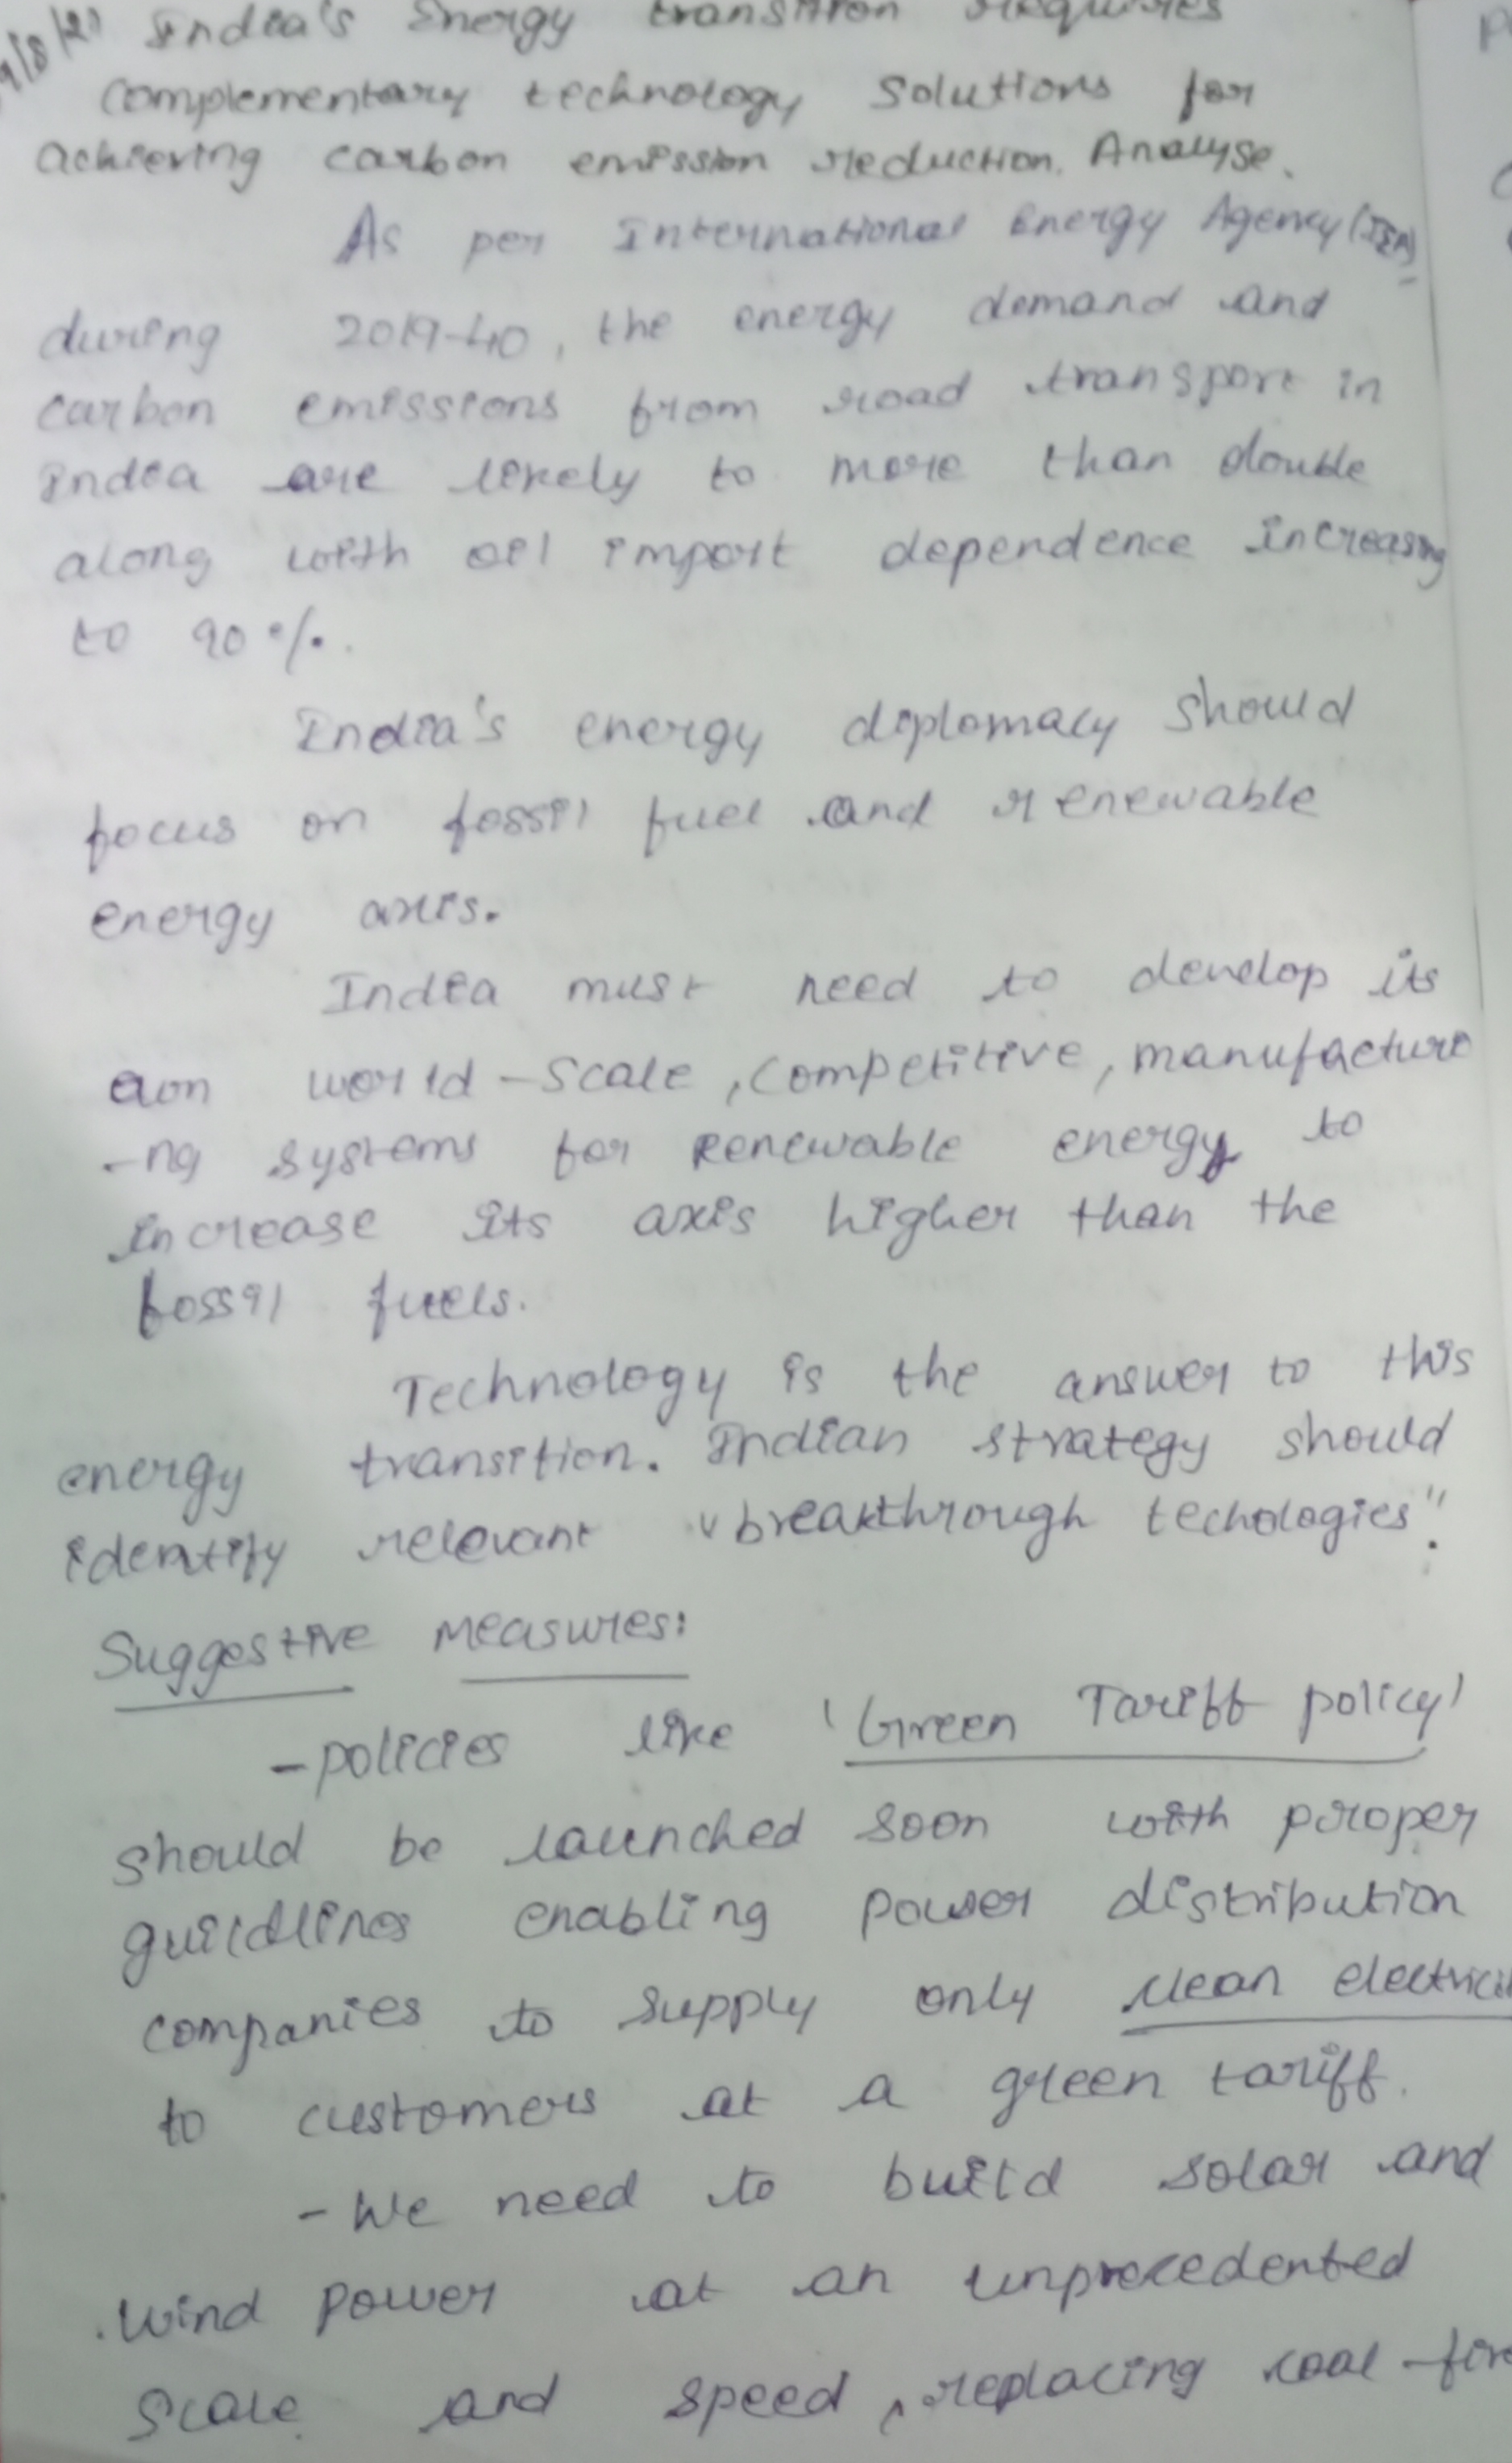 India's Energy transition requires
complementary technology solutions for
achieving carbon emission reduction. Analyse.
As per International Energy Agency (IEA)
during 2019-40, the energy demand and
carbon emissions from road transport in
India are likely to more than double
along with oil import dependence increasing
to 90%.
India's energy diplomacy should
focus on fossil fuel and renewable
energy axis.
India must need to develop its
world-scale, competitive, manufacturi
-ng systems for renewable energy to
increase its axis higher than the
fossil fuels.
Technology is the answer to this
energy transition. Indian strategy should
identify relevant "breakthrough techologies".
Suggestive measures:
- policies like 'Green Tariff policy'
should be launched soon with proper
guildlines enabling power distribution
companies to supply only clean electricit
to customers at a green tariff.
- We need to build solar and
wind power at an unprecedented
scale and speed, replacing coal-fire